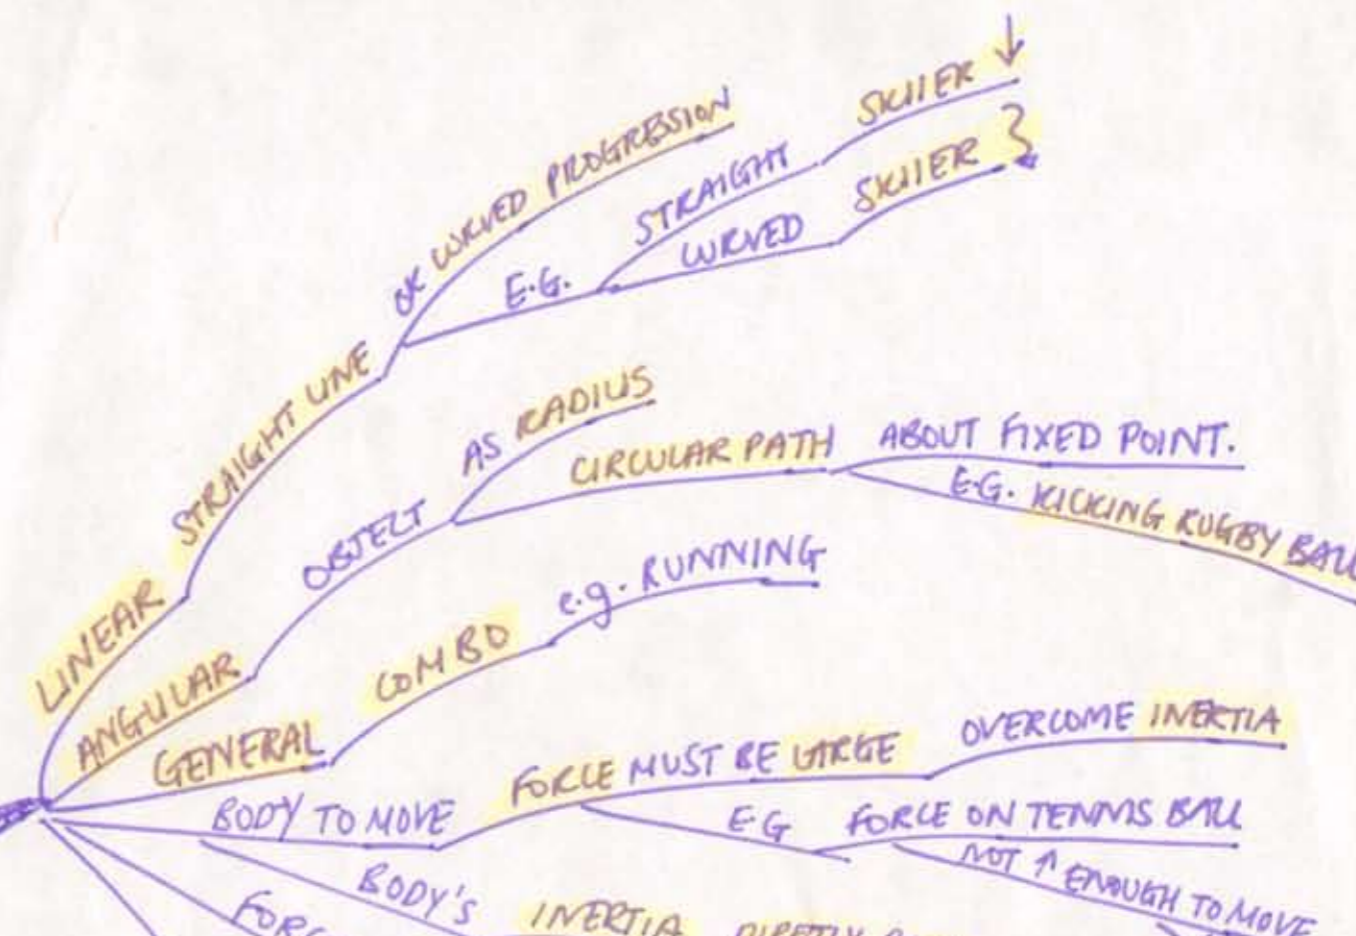 LINEAR
STRAIGHT LINE
OR CURVED PROGRESSION
E.G.
STRAIGHT
SKIIER ↓
CURVED
SKIIER
ANGULAR
OBJECT
AS RADIUS
CIRCULAR PATH
ABOUT FIXED POINT.
E.G. KICKING RUGBY BALL
GENERAL
COMBO
e.g. RUNNING
BODY TO MOVE
FORCE MUST BE LARGE
OVERCOME INERTIA
E.G
FORCE ON TENNIS BALL
NOT ↑ ENOUGH TO MOVE
BODY'S
INERTIA
FORC